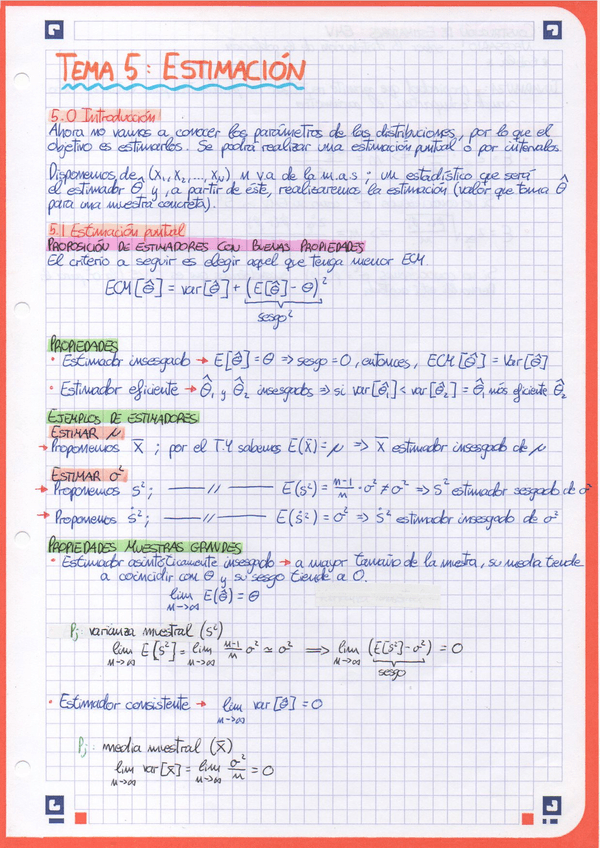 TEMA 5: ESTIMACIÓN
5.0 Introducción
Ahora no vamos a conocer los parámetros de las distribuciones, por lo que el
objetivo es estimarlos. Se podrá realizar una estimación puntual o por intervalos.
Disponemos de (X₁, X₂, ..., Xₙ), n v.a de la m.a.s ; un estadístico que será
el estimador θ̂ y, a partir de éste, realizaremos la estimación (valor que toma θ̂
para una muestra concreta).
5.1 Estimación puntual
PROPOSICIÓN DE ESTIMADORES CON BUENAS PROPIEDADES
El criterio a seguir es elegir aquel que tenga menor ECM.
ECM[θ̂] = var[θ̂] + (E[θ̂] - θ)²
sesgo²
PROPIEDADES
• Estimador insesgado → E[θ̂] = θ ⇒ sesgo = 0, entonces, ECM[θ̂] = Var[θ̂]
• Estimador eficiente → θ̂₁ y θ̂₂ insesgados ⇒ si var[θ̂₁] < var[θ̂₂] = θ̂₁ más eficiente θ̂₂
EJEMPLOS DE ESTIMADORES
ESTIMAR μ
→ Proponemos X̄ ; por el T.4 sabemos E(X̄) = μ ⇒ X̄ estimador insesgado de μ
ESTIMAR σ²
→ Proponemos S² ; —— // —— E(S²) = n-1/n · σ² ≠ σ² ⇒ S² estimador sesgado de σ²
→ Proponemos Ṡ² ; —— // —— E(Ṡ²) = σ² ⇒ Ṡ² estimador insesgado de σ²
PROPIEDADES MUESTRAS GRANDES
• Estimador asintóticamente insesgado → a mayor tamaño de la muestra, su media tiende
a coincidir con θ y su sesgo tiende a 0.
lim n→∞ E(θ̂) = θ
Pj: varianza muestral (S²)
lim n→∞ E[S²] = lim n→∞ n-1/n σ² ≃ σ² ⟹ lim n→∞ (E[S²] - σ²) = 0
sesgo
• Estimador consistente → lim n→∞ var[θ̂] = 0
Pj: media muestral (X̄)
lim n→∞ var[X̄] = lim n→∞ σ²/n = 0